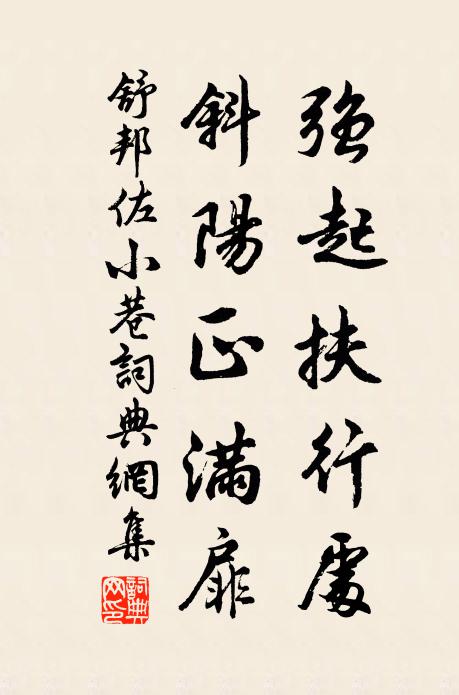 強起扶行處
斜陽正滿扉
舒邦佐小巷詞典網集
詞典網印